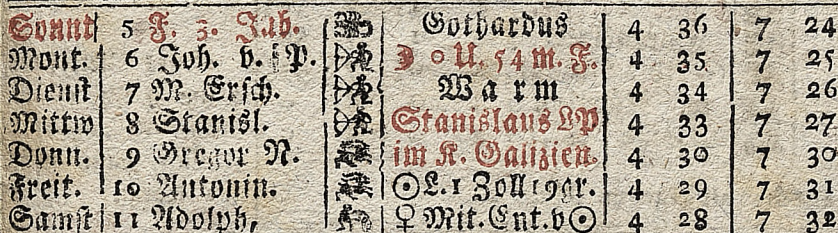 Sonnt 5 F. 3. Jub. Gothardus 4 36 7 24
Mont. 6 Joh. v. P. ☽ 0 U. 54 m. F. 4 35 7 25
Dienst 7 M. Ersch. Warm 4 34 7 26
Mittw 8 Stanisl. Stanislaus LP 4 33 7 27
Donn. 9 Gregor N. im K. Galizien. 4 30 7 30
Freit. 10 Antonin. ☉ L. 1 Zoll 19 gr. 4 29 7 31
Samst 11 Adolph, ♀ Mit. Ent. v ☉ 4 28 7 32